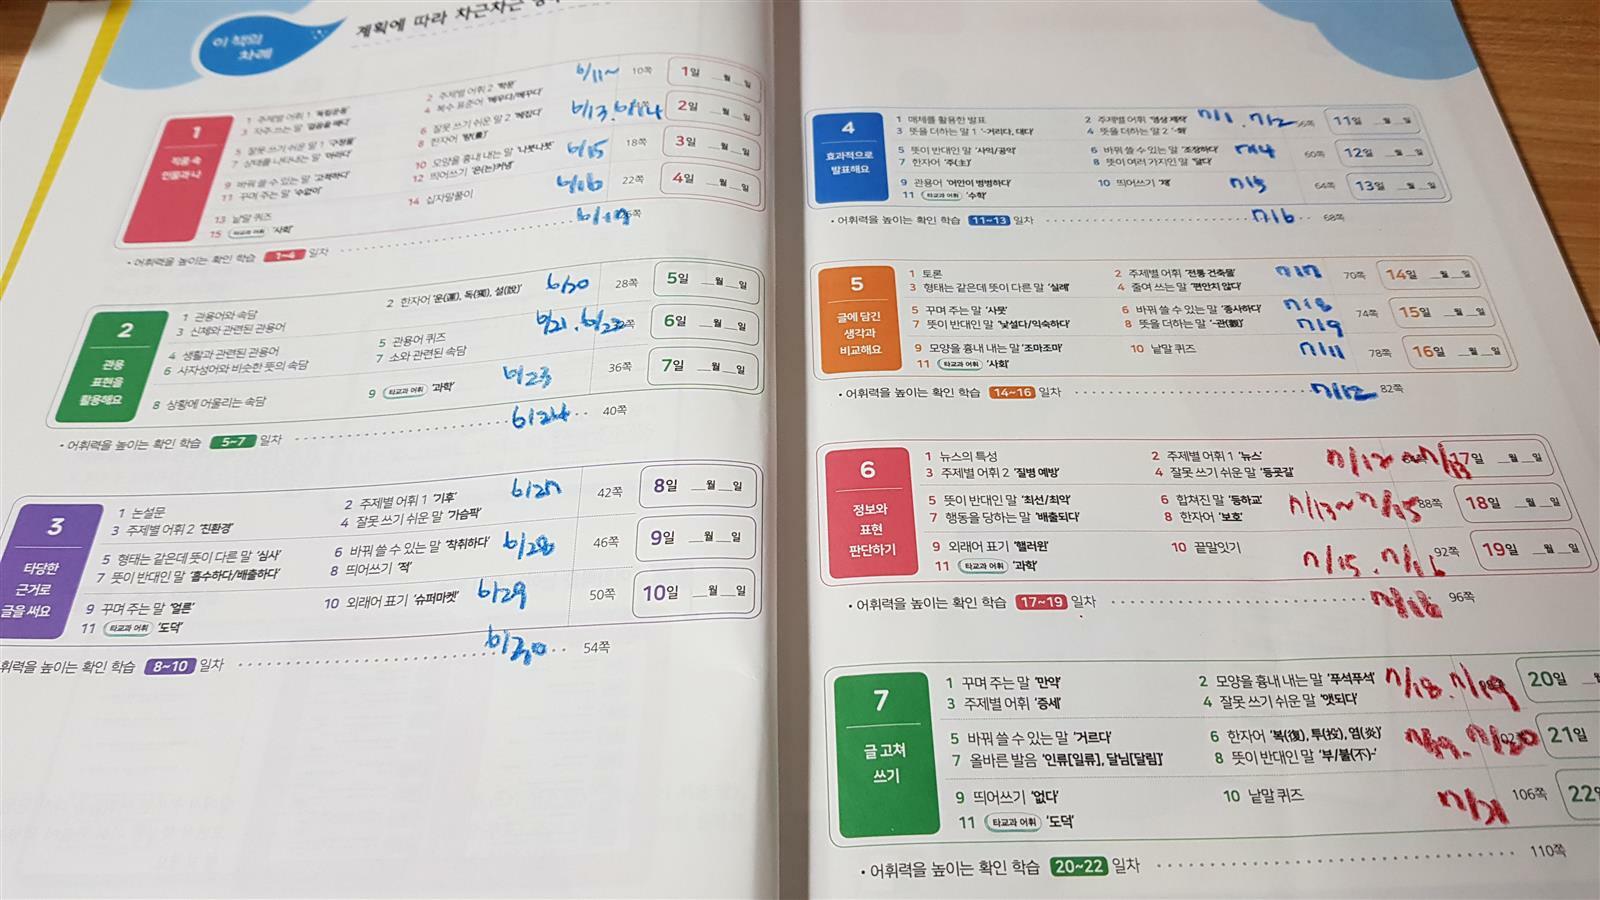 이 책의
차례
계획에 따라 차근차근
1
작품 속
인물과 나
1 주제별 어휘 1
2 주제별 어휘 2
6/11~
10쪽
1일 __월 __일
3 자주 쓰는 말
4 복수 표준어 '메우다/메꾸다'
5 잘못 쓰기 쉬운 말 1 '구정물'
6 잘못 쓰기 쉬운 말 2 '헤집다'
6/13. 6/14
2일 __월 __일
7 상태를 나타내는 말 '아리다'
8 한자어
9 바꿔 쓸 수 있는 말 '고백하다'
10 모양을 흉내 내는 말 '나붓나붓'
6/15
18쪽
3일 __월 __일
11 꾸며 주는 말 '수없이'
12 띄어쓰기 '은(는)커녕'
13 낱말 퀴즈
14 십자말풀이
6/16
22쪽
4일 __월 __일
15 타교과 어휘 '사회'
• 어휘력을 높이는 확인 학습 1~4 일차
2
관용
표현을
활용해요
1 관용어와 속담
2 한자어 '운(運), 독(獨), 설(說)'
6/20
28쪽
5일 __월 __일
3 신체와 관련된 관용어
4 생활과 관련된 관용어
5 관용어 퀴즈
6/21. 6/22
6일 __월 __일
6 사자성어와 비슷한 뜻의 속담
7 소와 관련된 속담
8 상황에 어울리는 속담
9 타교과 어휘 '과학'
6/23
36쪽
7일 __월 __일
• 어휘력을 높이는 확인 학습 5~7 일차
6/24
40쪽
3
타당한
근거로
글을 써요
1 논설문
2 주제별 어휘 1 '기후'
6/27
42쪽
8일 __월 __일
3 주제별 어휘 2 '친환경'
4 잘못 쓰기 쉬운 말 '가슴팍'
5 형태는 같은데 뜻이 다른 말 '심사'
6 바꿔 쓸 수 있는 말 '착취하다'
6/28
46쪽
9일 __월 __일
7 뜻이 반대인 말 '흡수하다/배출하다'
8 띄어쓰기 '적'
9 꾸며 주는 말 '얼른'
10 외래어 표기 '슈퍼마켓'
6/29
50쪽
10일 __월 __일
11 타교과 어휘 '도덕'
휘력을 높이는 확인 학습 8~10 일차
6/30
54쪽
4
효과적으로
발표해요
1 매체를 활용한 발표
2 주제별 어휘 '영상 제작'
7/1. 7/2
56쪽
11일 __월 __일
3 뜻을 더하는 말 1 '-거리다, 대다'
4 뜻을 더하는 말 2 '-화'
5 뜻이 반대인 말 '사익/공익'
6 바꿔 쓸 수 있는 말 '조장하다'
7/4
60쪽
12일 __월 __일
7 한자어 '주(主)'
8 뜻이 여러 가지인 말 '달다'
9 관용어 '어안이 벙벙하다'
10 띄어쓰기 '채'
7/5
64쪽
13일 __월 __일
11 타교과 어휘 '수학'
• 어휘력을 높이는 확인 학습 11~13 일차
7/6
68쪽
5
글에 담긴
생각과
비교해요
1 토론
2 주제별 어휘 '전통 건축물'
7/7
70쪽
14일 __월 __일
3 형태는 같은데 뜻이 다른 말 '실례'
4 줄여 쓰는 말 '편안치 않다'
5 꾸며 주는 말 '사뭇'
6 바꿔 쓸 수 있는 말 '종사하다'
7/8
74쪽
15일 __월 __일
7 뜻이 반대인 말 '낯설다/익숙하다'
8 뜻을 더하는 말 '-관(觀)'
7/9
9 모양을 흉내 내는 말 '조마조마'
10 낱말 퀴즈
7/11
78쪽
16일 __월 __일
11 타교과 어휘 '사회'
• 어휘력을 높이는 확인 학습 14~16 일차
7/12
82쪽
6
정보와
표현
판단하기
1 뉴스의 특성
2 주제별 어휘 1 '뉴스'
7/12 ~ 7/13
17일 __월 __일
3 주제별 어휘 2 '질병 예방'
4 잘못 쓰기 쉬운 말 '등굣길'
5 뜻이 반대인 말 '최선/최악'
6 합쳐진 말 '등하교'
7/13~ 7/15
88쪽
18일 __월 __일
7 행동을 당하는 말 '배출되다'
8 한자어 '보호'
9 외래어 표기 '핼러윈'
10 끝말잇기
7/15. 7/16
92쪽
19일 __월 __일
11 타교과 어휘 '과학'
• 어휘력을 높이는 확인 학습 17~19 일차
7/18
96쪽
7
글 고쳐
쓰기
1 꾸며 주는 말 '만약'
2 모양을 흉내 내는 말 '푸석푸석'
7/18. 7/19
20일
3 주제별 어휘 '증세'
4 잘못 쓰기 쉬운 말 '앳되다'
5 바꿔 쓸 수 있는 말 '거르다'
6 한자어 '복(復), 투(投), 염(炎)'
7/19. 7/20
21일
7 올바른 발음 '인류[일류], 달님[달림]'
8 뜻이 반대인 말 '부/불(不)-'
9 띄어쓰기 '없다'
10 낱말 퀴즈
7/21
106쪽
22일
11 타교과 어휘 '도덕'
• 어휘력을 높이는 확인 학습 20~22 일차
110쪽